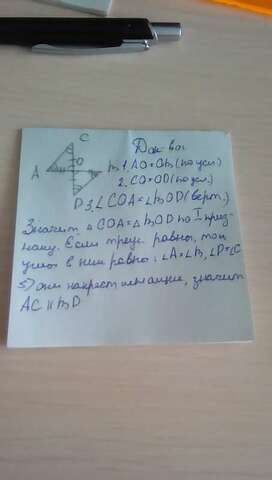 C
Док-во:
A O m 1. AO=Om (по усл)
2. CO=OD (по усл.)
D 3. ∠COA=∠mOD (верт.)
Значит, △COA=△mOD по I приз-
наку. Если треуг. равны, то и
углы в них равны, ∠A=∠m, ∠D=∠C
5) они накрест лежащие, значит
AC || mD